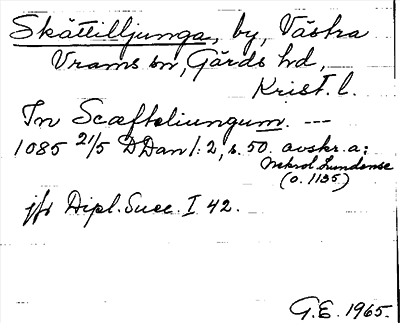 Skättilljunga, by, Västra
Vrams sn, Gärds hd,
Krist. l.
In Scafteliungum. ---
1085 21/5 DDan 1:2, s. 50. avskr. a:
Nekrol. Lundense
(o. 1135)
jfr Dipl. Suec. I 42.
G.E. 1965.